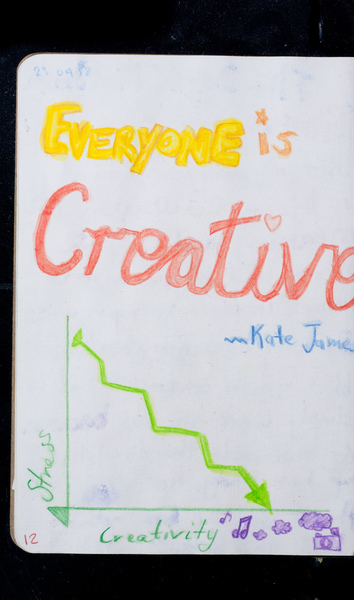 EVERYONE is
Creative
~Kate Jame
Stress
Creativity
12